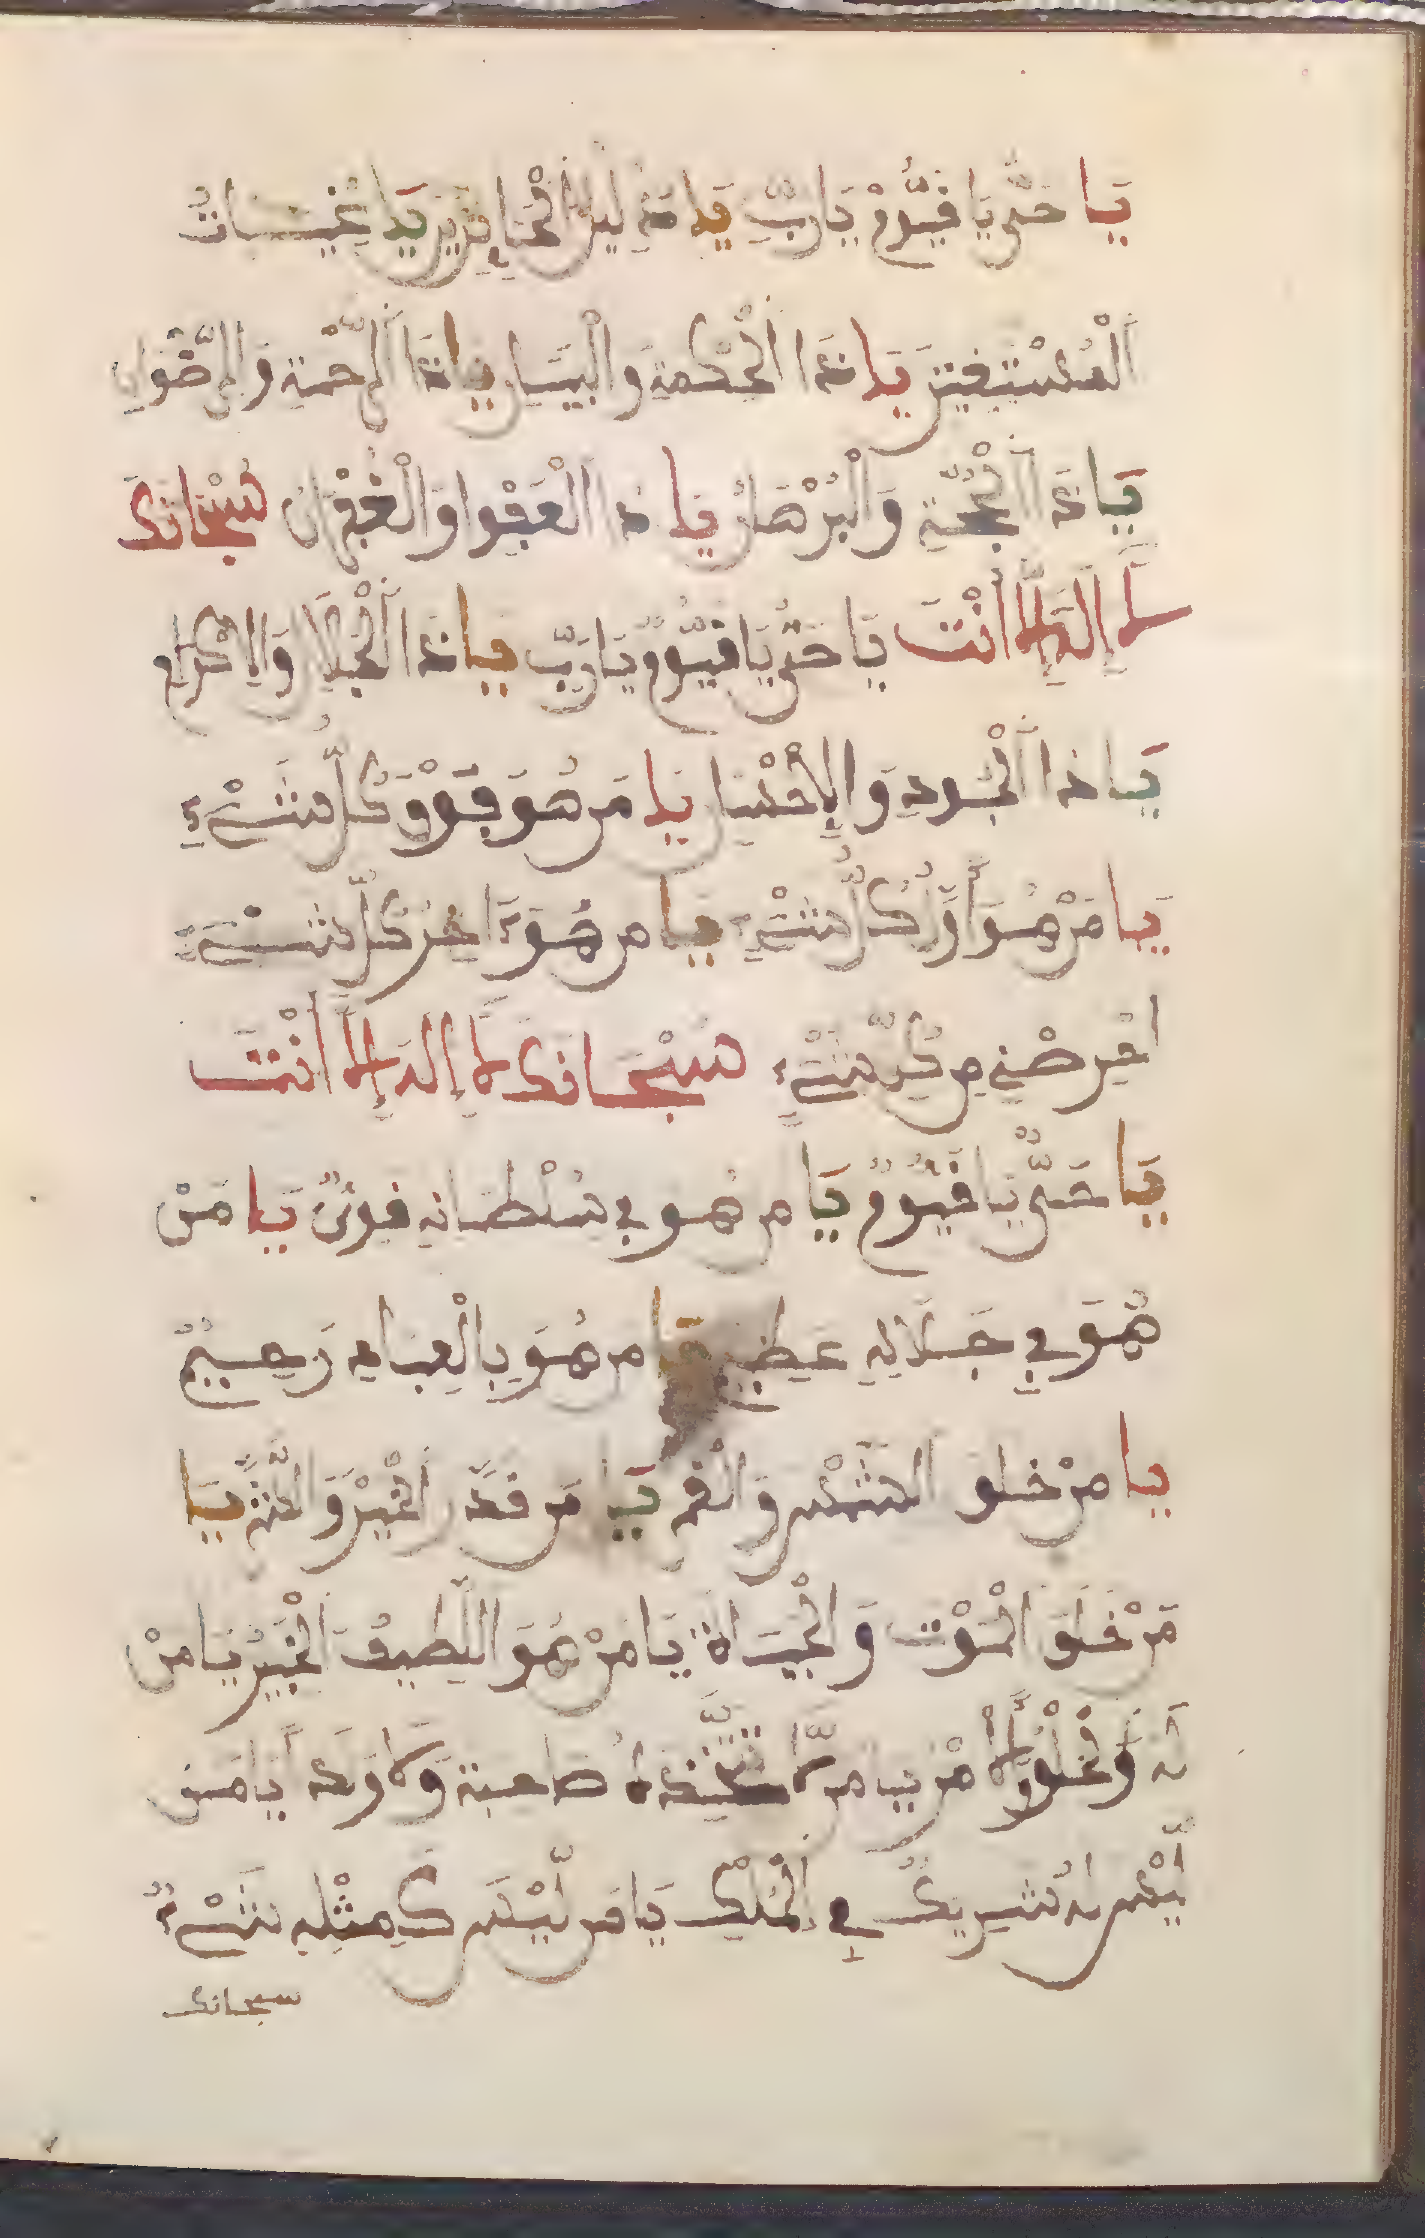 يَا حَىُّ يَا قَيُّومُ يَا رَبِّ يَا دَلِيلَ الْحَايِرِينَ يَا غِيَاثَ
الْمُسْتَغِيثِينَ يَا ذَا الْحِكْمَةِ وَالْبَيَانِ يَا ذَا الرَّحْمَةِ وَالرِّضْوَانِ
يَا ذَا الْحُجَّةِ وَالْبُرْهَانِ يَا ذَا الْعَفْوِ وَالْغُفْرَانِ سُبْحَانَكَ
لَا إِلَهَ إِلَّا أَنْتَ يَا حَىُّ يَا قَيُّومُ يَا رَبِّ يَا ذَا الْجَلَالِ وَالْإِكْرَامِ
يَا ذَا الْجُودِ وَالْإِحْسَانِ يَا مَنْ هُوَ فَوْقَ كُلِّ شَىْءٍ
يَا مَنْ هُوَ أَوَّلُ كُلِّ شَىْءٍ يَا مَنْ هُوَ ءَاخِرُ كُلِّ شَىْءٍ
مِن كُلِّ شَىْءٍ سُبْحَانَكَ لَا إِلَهَ إِلَّا أَنْتَ
يَا حَىُّ يَا قَيُّومُ يَا مَن هُوَ فِي سُلْطَانِهِ قَوِىٌّ يَا مَنْ
هُوَ فِي جَلَالِهِ عَظِيمٌ يَا مَن هُوَ بِالْعِبَادِ رَحِيمٌ
يَا مَنْ خَلَقَ الشَّمْسَ وَالْقَمَرَ يَا مَن قَدَّرَ الْخَيْرَ وَالشَّرَّ يَا
مَنْ خَلَقَ الْمَوْتَ وَالْحَيَاةَ يَا مَنْ هُوَ اللَّطِيفُ الْخَبِيرُ يَا مَنْ
لَهُ الْخَلْقُ وَالْأَمْرُ يَا مَن لَّا يَتَّخِذُ صَاحِبَةً وَلَا وَلَدًا يَا مَن
لَّيْسَ لَهُ شَرِيكٌ فِي الْمُلْكِ يَا مَن لَّيْسَ كَمِثْلِهِ شَىْءٌ
سبحانك